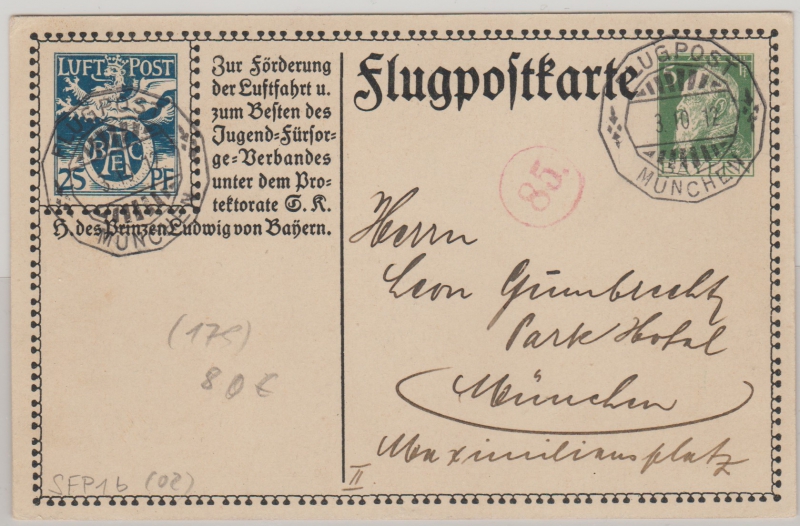 LUFT POST
BAEC
25 PF
Zur Förderung
der Luftfahrt u.
zum Besten des
Jugend-Fürsor-
ge-Verbandes
unter dem Pro-
tektorate S. K.
H. des Prinzen Ludwig von Bayern.
Flugpostkarte
FLUGPOST
3.10.12
MÜNCHEN
FLUGPOST
MÜNCHEN
85.
Herrn
Leon Gumbrecht
Park Hotel
München
Maximiliansplatz
II
(175)
80€
SFP1b (02)